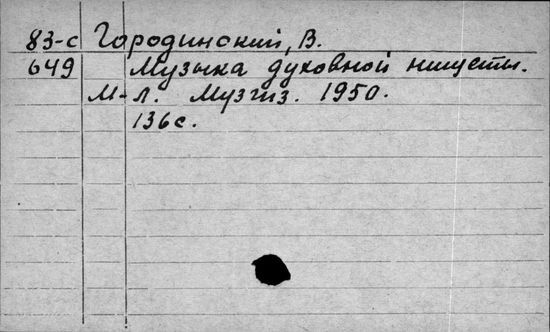 83-с Городинский, В.
649 Музыка духовной нищеты.
М-Л. Музгиз. 1950.
136с.